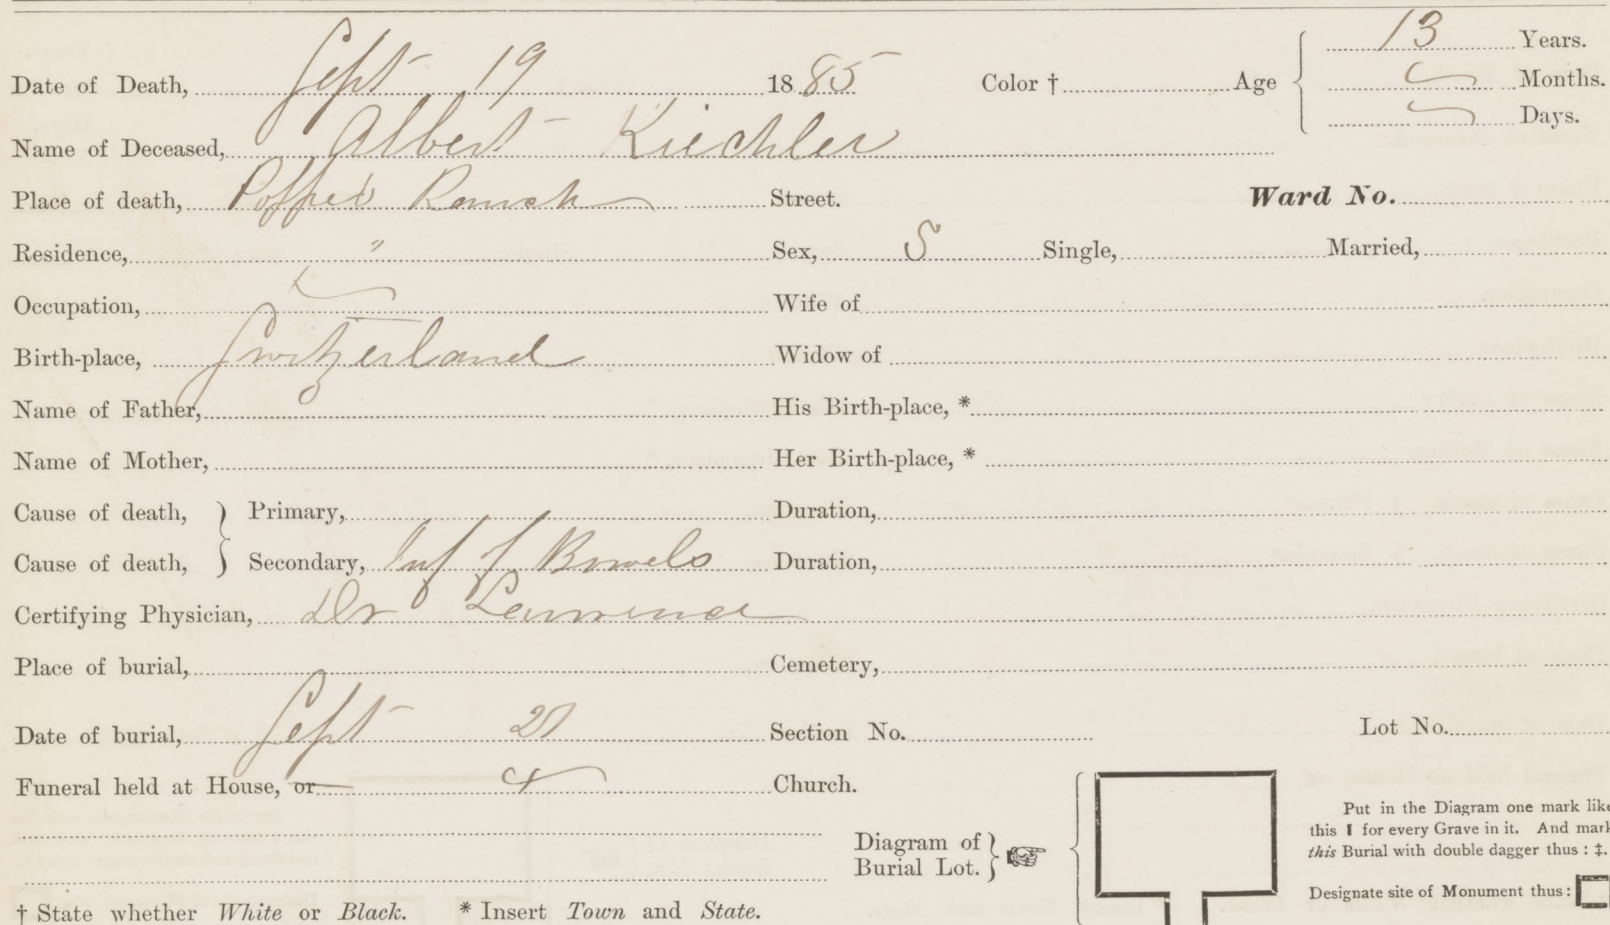 Date of Death, Sept 19 1885 Color † Age 13 Years.
Months.
Days.
Name of Deceased, Albert Kiechler
Place of death, Ranch Street. Ward No.
Residence, " Sex, S Single, Married,
Occupation, Wife of
Birth-place, Switzerland Widow of
Name of Father, His Birth-place, *
Name of Mother, Her Birth-place, *
Cause of death, } Primary, Duration,
Cause of death, } Secondary, Inf of Bowels Duration,
Certifying Physician, Dr Lawrence
Place of burial, Cemetery,
Date of burial, Sept Section No. Lot No.
Funeral held at House, or Church.
Diagram of
Burial Lot. }
Put in the Diagram one mark like
this I for every Grave in it. And mark
this Burial with double dagger thus : ‡.
Designate site of Monument thus :
† State whether White or Black. * Insert Town and State.